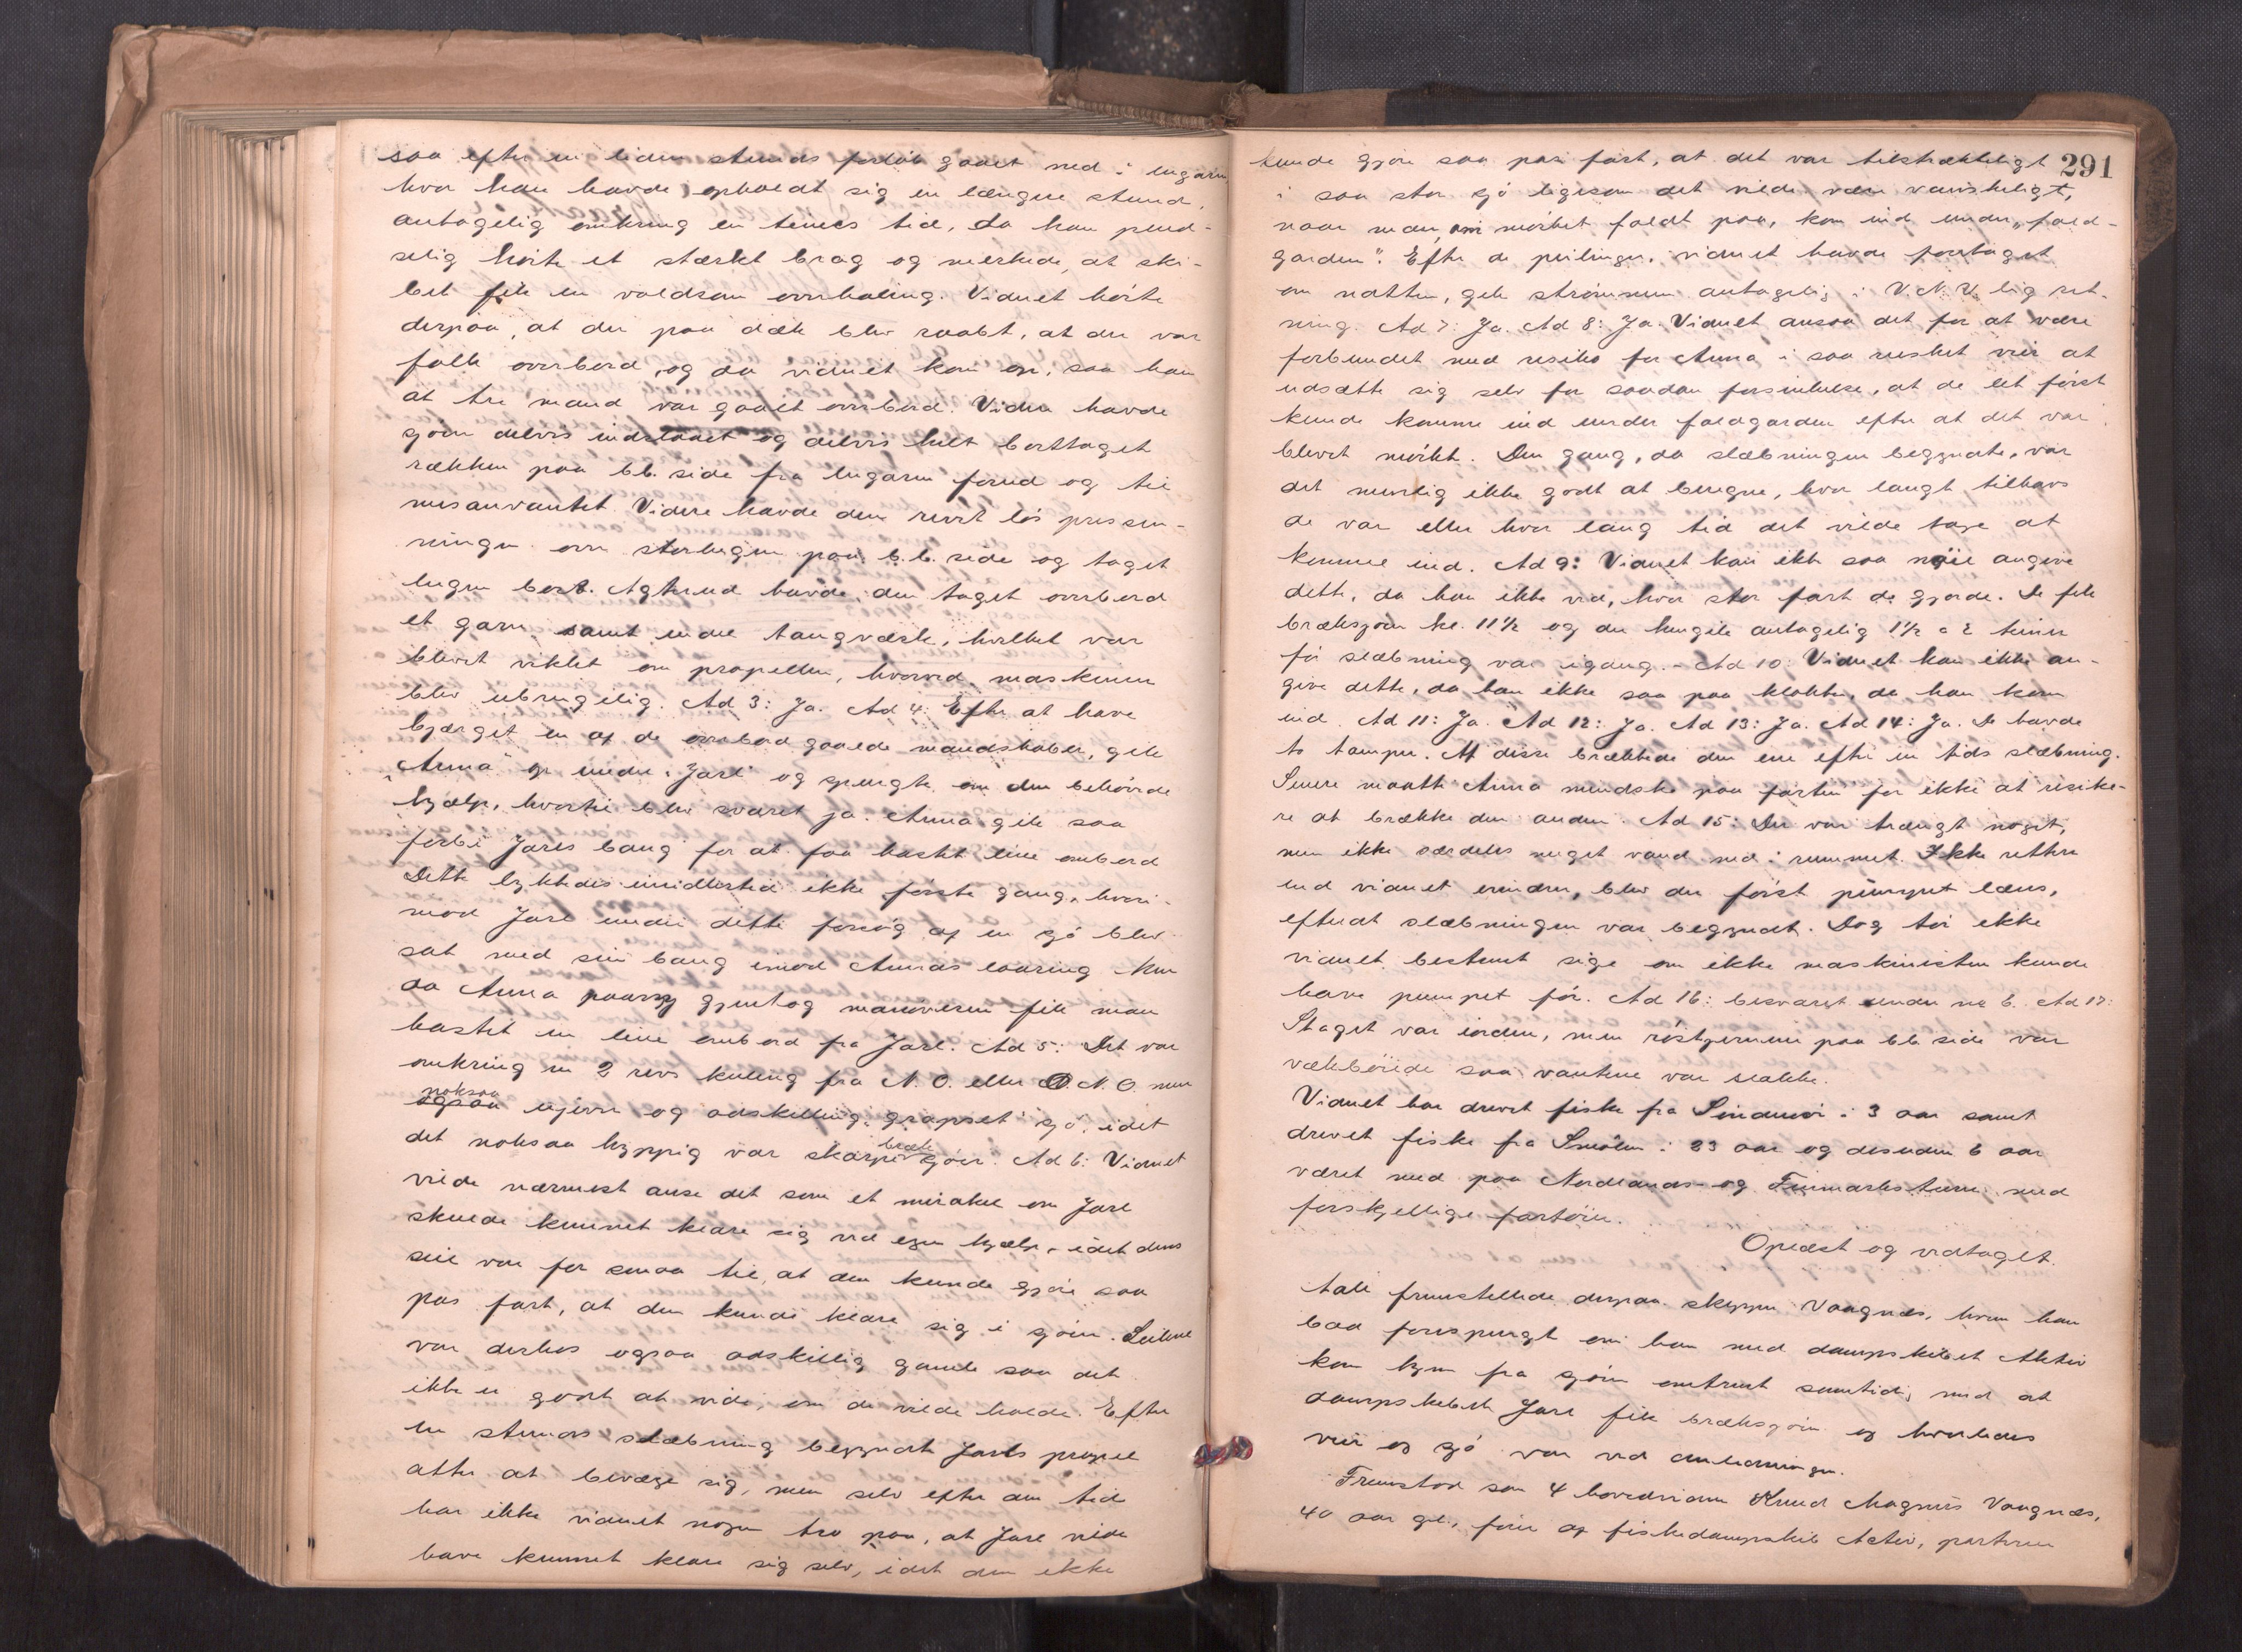 saa efter en liden stunds forløb gaaet ned i lugaren,
hvor han havde opholdt sig en længere stund,
antagelig omkring en times tid, da han plud-
selig hørte et stærkt brag og merkede, at ski-
bet fik en voldsom overhaling. Vidnet hørte
derpaa, at der paa dæk blev raabt, at der var
folk overbord, og da vidnet kom op, saa han
at tre mand var gaaet overbord. Videre havde
sjøen delvis indslaaet og delvis helt borttaget
rækken paa bb. side fra lugaren forud og til
mesanvantet. Videre havde den revet løs presen-
ningen over storlugen paa b.b. side og taget
lugen bort. Agterud havde den taget overbord
et garn samt endel taugværk, hvilket var
blevet viklet om propellen, hvorved maskinen
blev ubrugelig. Ad 3: Ja. Ad 4: Efter at have
bjærget en af de overbord gaaede mandskaber, gik
"Anna" op under "Jarl" og spurgte om den behøvede
hjælp, hvortil blev svaret ja. Anna gik saa
forbi Jarls baug for at faa kastet line ombord
Dette lykkedes imidlertid ikke første gang, hvori-
mod Jarl under dette forsøg af en sjø blev
sat med sin baug imod Annas laaring. Men
da Anna paany gjentog manøveren fik man
kastet en line ombord fra Jarl. Ad 5: Det var
omkring en 2 revs kuling fra N.O. eller O.N.O. men
noksaa
ogsaa ujevn og adskillig "grapset" sjø, idet
bræk
det noksaa hyppig var skarpe sjøer. Ad 6: Vidnet
vilde nærmest anse det som et mirakel om Jarl
skulde kunnet klare sig ved egen hjælp, idet dens
seil var for smaa til, at den kunde gjøre saa
pas fart, at den kunde klare sig i sjøen. Seilene
var derhos ogsaa adskillig gamle saa det
ikke er godt at vide, om de vilde holde. Efter
en stunds slæbning begyndte Jarls propel
atter at bevæge sig, men selv efter den tid
har ikke vidnet nogen tro paa, at Jarl vilde
have kunnet klare sig selv, idet den ikke
291
kunde gjøre saa pas fart, at det var tilstrækkeligt
i saa stor sjø ligesom det vilde være vanskeligt,
naar man, om mørket faldt paa, kom ind under "fald-
garden". Efter de peilinger, vidnet havde foretaget
om natten, gik strømmen antagelig i V.N.V. lig ret-
ning. Ad 7: Ja. Ad 8: Ja. Vidnet ansaa det for at være
forbundet med risiko for Anna i saa rusket veir at
udsætte sig selv for saadan forsinkelse, at de let først
kunde komme ind under faldgarden efter at det var
blevet mørkt. Den gang, da slæbningen begyndte, var
det nemlig ikke godt at beregne, hvor langt tilhavs
de var eller hvor lang tid det vilde tage at
komme ind. Ad 9: Vidnet kan ikke saa nøie angive
dette, da han ikke ved, hvor stor fart de gjorde. De fik
bræksjøen kl. 11½ og der hengik antagelig 1½ a 2 timer
før slæbning var igang. - Ad 10: Vidnet kan ikke an-
give dette, da han ikke saa paa klokken, da han kom
ind. Ad 11: Ja. Ad 12: Ja. Ad 13: Ja. Ad 14: Ja. De havde
to tamper. Af disse brækkede den ene efter en tids slæbning.
Senere maatte Anna mindske paa farten for ikke at risike-
re at brække den anden. Ad 15: Der var trængt noget,
men ikke særdeles meget vand ned i rummet. Ikke rettere
end vidnet erindrer, blev der først pumpet læns,
efterat slæbningen var begyndt. Dog tør ikke
vidnet bestemt sige om ikke maskinisten kunde
have pumpet før. Ad 16: besvaret under no 6. Ad 17:
Staget var iorden, men røstjernene paa bb side var
vækbøiede saa vantene var slakke.
Vidnet har drevet fiske fra i 3 aar samt
drevet fiske fra Smølen i 23 aar og desuden 6 aar
været med paa Nordlands- og Finmarksturene med
forskjellige fartøier.
Oplæst og vedtaget.
Aall fremstillede derpaa skipper Vaagnæs, hvem han
bad forespurgt om han med dampskibet Aktiv
kom hjem fra sjøen omtrent samtidig med at
dampskibet Jarl fik bræksjøen og hvorledes
veir og sjø var ved anledningen.
Fremstod som 4 hovedvidne Knud Magnus Vaagnæs,
40 aar gl., fører af fiskedampskib Activ, parterne